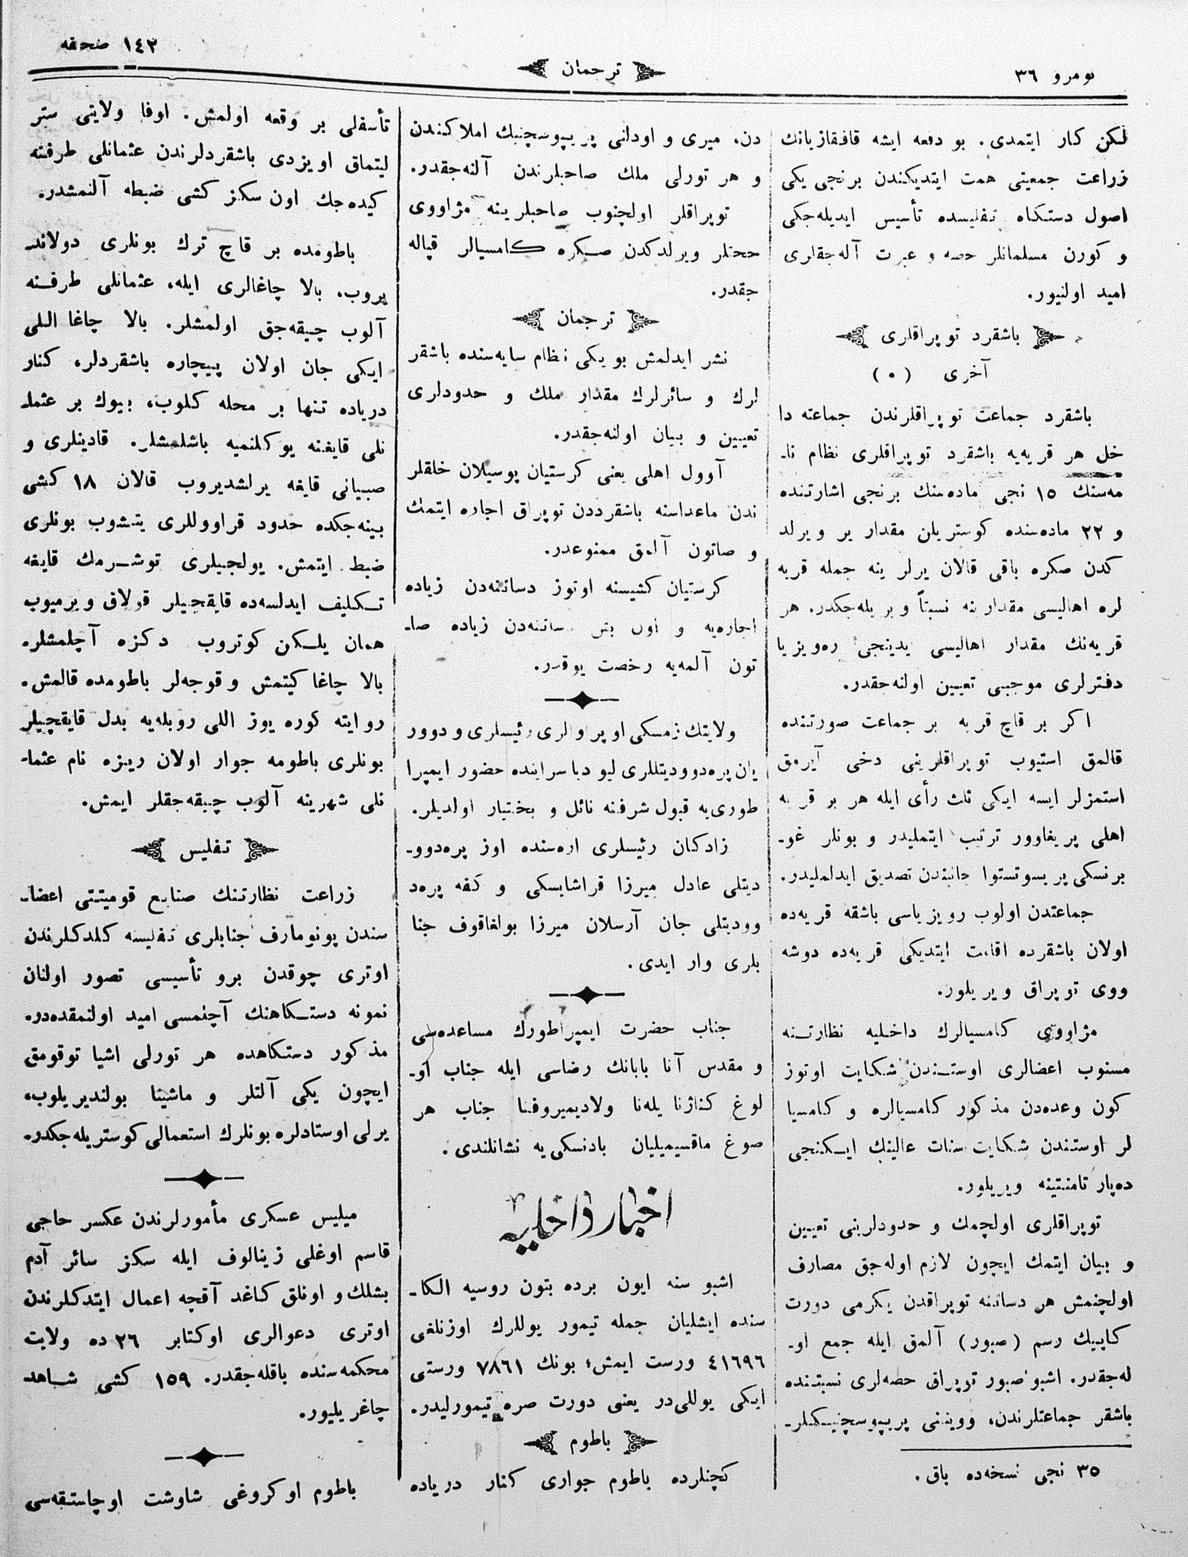 نومرو ٣٦
ترجمان
١٤٣ صحيفه
لكن كار ايتمدى. بو دفعه ايشه قافقازيانك
زراعت جمعيتى همت ايتديكندن برنجى يكى
اصول دستكاه تفليسده تأسيس ايديله‌جكى
و كورن مسلمانلر حصه و عبرت آله‌جقلرى
اميد اولنيور.
باشقرد توپراقلرى
آخرى (٠)
باشقرد جماعت توپراقلرندن جماعته دا
خل هر قريه‌يه باشقرد توپراقلرى نظام نا‌ـ
مه‌سنك ١٥ نجى ماده‌سنك برنجى اشارتنده
و ٢٢ ماده‌سنده كوستريلن مقدار ير ويرلد
كدن صكره باقى قالان يرلر ينه جمله قريه
لره اهاليسى مقدارنه نسبتاً ويريله‌جكدر. هر
قريه‌نك مقدار اهاليسى يدينجى ره‌ويزيا
دفترلرى موجبى تعيين اولنه‌جقدر.
اكر بر قاچ قريه بر جماعت صورتنده
قالمق استيوب توپراقلرينى دخى آيرمق
استمزلر ايسه ايكى ثلث رأى ايله هر بر قريه
اهلى پريغاوور ترتيب ايتمليدر و بونلر غو‌ـ
برنسكى پريسوتستوا جانبندن تصديق ايدلمليدر.
جماعتدن اولوب رويزياسى باشقه قريه‌ده
اولان باشقرده اقامت ايتديكى قريه‌ده دوشه
ووى توپراق ويريلور.
مژاووى كامسيالرك داخليه نظارتنه
منسوب اعضالرى اوستندن شكايت اوتوز
كون وعده‌دن مذكور كامسيالره و كامسيا
لر اوستندن شكايت سنات عالينك ايكنجى
ده‌پارتامنتينه ويريلور.
توپراقلرى اولچمك و حدودلرينى تعيين
و بيان ايتمك ايچون لازم اوله‌جق مصارف
اولچنمش هر دساتنه توپراقدن يكرمى دورت
كاپيك رسم (صبور) آلمق ايله جمع او‌ـ
له‌جقدر. اشبو صبور توپراق حصه‌لرى نسبتنده
باشقر جماعتلرندن، ووتنى پريپوسچنيكلر‌ـ
٣٥ نجى نسخه‌ده باق.
دن، ميرى و اودلنى پريپوسچنيك املاكندن
و هر تورلى ملك صاحبلرندن آلنه‌جقدر.
توپراقلر اولچنوب صاحبلرينه مژاووى
حجتلر ويرلدكدن صكره كامسيالر قپاله
جقدر.
ترجمان
نشر ايدلمش بو يكى نظام سايه‌سنده باشقر
لرك و سائرلرك مقدار ملك و حدودلرى
تعيين و بيان اولنه‌جقدر.
آوول اهلى يعنى كرستيان پوسيلان خلقلر
ندن ماعداسنه باشقرددن توپراق اجاره ايتمك
و صاتون آلمق ممنوعدر.
كرستيان كشيسنه اوتوز دساتنه‌دن زياده
اجاره‌يه و اون بش ساتنه‌دن زياده صا‌ـ
تون آلمه‌يه رخصت يوقدر.
ولايتك زمسكى اوپراوالرى رئيسلرى و دوور
يان پره‌دووديتللرى ليوادياسراينده حضور ايمپرا
طورى‌يه قبول شرفنه نائل و بختيار اولديلر.
زادكان رئيسلرى اره‌سنده اوز پره‌دوو‌ـ
ديتلى عادل ميرزا قراشايسكى و كفه پره‌د
ووديتلى جان آرسلان ميرزا بولغاقوف جنا
بلرى وار ايدى.
جناب حضرت ايمپراطورك مساعده‌سى
و مقدس آنا بابانك رضاسى ايله جناب او‌ـ
لوغ كنازنا يله‌نا ولاديميروفنا جناب هر
صوغ ماقسيميليان بادنسكى‌يه نشانلندى.
اخبار داخليه
اشبو سنه ايون برده بتون روسيه الكا‌ـ
سنده ايشليان جمله تيمور يوللرك اوزنلغى
٤١٦٩٦ ورست ايمش؛ بونك ٧٨٦١ ورستى
ايكى يوللى‌در يعنى دورت صره تيمورليدر.
باطوم
كچنلرده باطوم جوارى كنار درياده
تأسفلى بر وقعه اولمش. اوفا ولايتى ستر
ليتماق اويزدى باشقردلرندن عثمانلى طرفنه
كيده‌جك اون سكز كشى ضبطه آلنمشدر.
باطومده بر قاچ ترك بونلرى دولاند
يروب، بالا چاغالرى ايله، عثمانلى طرفنه
آلوب چيقه‌جق اولمشلر. بالا چاغا اللى
ايكى جان اولان بيچاره باشقردلر، كنار
درياده تنها بر محله كلوب، بيوك بر عثما‌
نلى قايغنه يوكلنميه باشلمشلر. قادينلرى و
صبيانى قايغه يرلشديروب قالان ١٨ كشى
بينه‌جكده حدود قراووللرى يتشوب بونلرى
ضبط ايتمش. يولجيلرى توشرمك قايغه
تكليف ايدلسه‌ده قايقجيلر قولاق ويرميوب
همان يلكن كوتروب دكزه آچلمشلر.
بالا چاغا كيتمش و قوجه‌لر باطومده قالمش.
روايته كوره يوز اللى روبله‌يه بدل قايقچيلر
بونلرى باطومه جوار اولان ريزه نام عثما‌ـ
نلى شهرينه آلوب چيقه‌جقلر ايمش.
تفليس
زراعت نظارتنك صنايع قوميتتى اعضا‌ـ
سندن پونومارف جنابلرى تفليسه كلدكلرندن
اوترى چوقدن برو تأسيسى تصور اولنان
نمونه دستكاهنك آچلمسى اميد اولنمقده‌در.
مذكور دستكاهده هر تورلى اشيا توقومق
ايچون يكى آلتلر و ماشينا بولنديريلوب،
يرلى اوستادلره بونلرك استعمالى كوستريله‌جكدر.
ميليس عسكرى مأمورلرندن عكسر حاجى
قاسم اوغلى زينالوف ايله سكز سائر آدم
بشلك و اونلق كاغد آقچه اعمال ايتدكلرندن
اوترى دعوالرى اوكتابر ٢٦ ده ولايت
محكمه‌سنده باقله‌جقدر. ١٥٩ كشى شاهد
چاغريليور.
باطوم اوكروغى شاوشت اوچاستقه‌سى